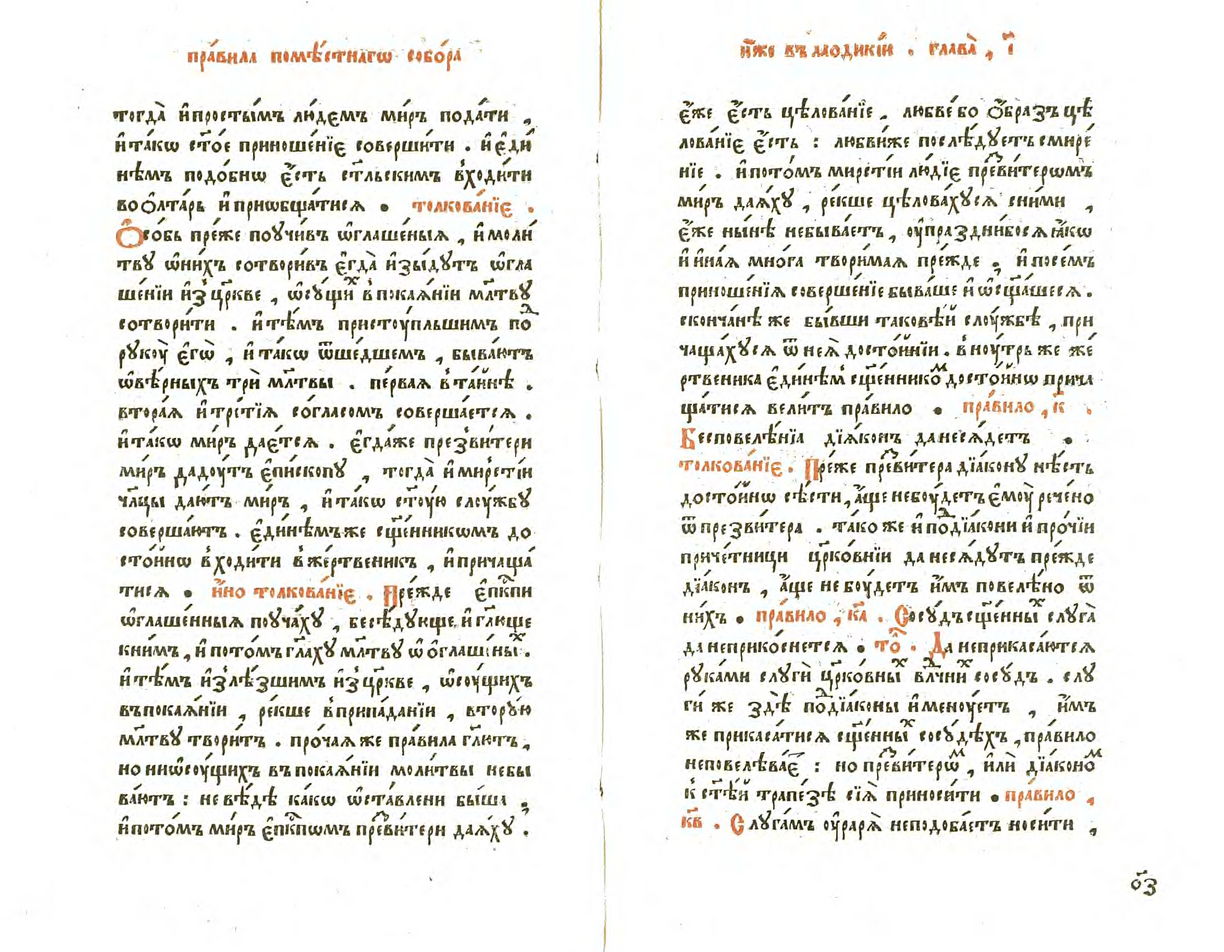 пра́вила помѣ́стнагѡ собо́ра
тогда̀ и҆просты́мъ лю́демъ ми́ръ пода́ти ,
и҆та́кѡ ст҃о́е приноше́нїе соверши́ти . и҆є҆ди́
нѣ́мъ подо́бнѡ є҆́сть ст҃льскимъ в̾ходи́ти
воѻ҆лта́рь и҆прїѡбща́тисѧ • толкова́нїе .
Ѻ҆со́бь пре́же поучи́въ ѡ҆глаше́ныѧ , и҆моли́
тву ѡ҆ни́хъ сотвори́въ є҆гда̀ и҆зы́дутъ ѡ҆гла
ше́нїи и҆з̾ цр҃кве , ѡ҆су́щиⷯ в̾покаѧ́нїи мл҃тву
сотвори́ти . и҆тѣ́мъ пристоу́пльшимъ поⷣ
рꙋкоу̀ є҆гѡ̀ , и҆та́кѡ ѿше́дшемъ , быва́ютъ
ѡ҆вѣ́рныхъ трѝ мл҃твы . пе́рваѧ в̾та́инѣ .
втора́ѧ и҆тре́тїѧ со́гласомъ соверша́етсѧ .
и҆та́кѡ ми́ръ дае́тсѧ . є҆гда́же презви́тери
ми́ръ дадоу́тъ є҆пи́скопꙋ , тогда̀ и҆мирстїи
ча́дцы даю́тъ ми́ръ , и҆та́кѡ ст҃оу́ю слоу́жбꙋ
соверша́ютъ . є҆ди́нѣмъже сщ҃е́нникѡмъ до
сто́йнѡ в̾ходи́ти в̾же́ртвеникъ , и҆причаща́
тисѧ • и҆́но толкова́нїе . Пре́жде є҆пⷭ҇кпи
ѡ҆глаше́нныѧ поуча́хꙋ , бесѣ́дꙋюще, и҆гл҃юще
кни́мъ , и҆пото́мъ гл҃ахꙋ мл҃твꙋ ѡ҆ѻ҆глаше́ныⷯ .
и҆тѣ́мъ и҆злѣ́зшимъ и҆з̾цр҃кве , ѡ҆соу́щихъ
въпокаѧ́нїи , ре́кше в̾припа́данїи , вторꙋ́ю
мл҃твꙋ твори́тъ . про́чаѧ же пра́вила гл҃ютъ ,
но ниѡ҆соу́щихъ въпокаѧ́нїи моли́твы небы
ва́ютъ : невѣ́дѣ ка́кѡ ѡ҆ста́влени бы́ша ,
и҆пото́мъ ми́ръ є҆пⷭ҇кпѡмъ пре́ви́тери даѧ́хꙋ .
и҆́же въ лаодикі́и . глава̀ , і҃
є҆́же є҆́сть цѣлова́нїе . любве́ бо ѻ҆́бразъ цѣ
лова́нїе є҆́сть : любви́же послѣ́дꙋетъ смире́
нїе . и҆пото́мъ мирстїи лю́дїе преви́терѡмъ
ми́ръ даѧ́хꙋ , ре́кше цѣлова́хꙋсѧ сни́ми ,
є҆́же ны́нѣ небыва́етъ , оу҆праздни́босѧ ꙗ҆́кѡ
и҆ и҆на́ѧ мно́га твори́маѧ пре́жде , и҆посе́мъ
приноше́нїѧ соверше́нїе быва́ше и҆ ѡ҆сщ҃а́шесѧ .
сконча́нѣ же бы́вши таковѣ́й слоу́жбѣ , при
чаща́хꙋсѧ ѿ неѧ̀ досто́йнїи . в̾ноу́трь же же́
ртвеника є҆ди́нѣм̾ сщ҃е́нникоⷨ досто́йнѡ прича
ща́тисѧ вели́тъ пра́вило • пра́вило , к҃ .
Бесповелѣ́нїа дїѧ́конъ данесѧ́детъ •
толкова́нїе . Пре́же преви́тера дїа́конꙋ нѣ́сть
досто́йнѡ сѣ́сти, а҆́ще небоу́детъ є҆моу̀ рече́но
ѿ презви́тера . тако́же и҆ поⷣдїа́кони и҆ про́чїи
приче́тницы цр҃ко́внїи да несѧ́дутъ пре́жде
дїа́конъ , а҆́ще не боу́детъ и҆̀мъ повелѣ́но ѿ
ни́хъ • пра́вило , к҃а . Сосꙋ́дъ сщ҃е́нныⷯ слꙋга̀
да неприко́снетсѧ • тоⷧ҇ . Да неприкаса́ютсѧ
рꙋка́ми слꙋгѝ цр҃ко́вныⷯ влⷣчниⷯ сосꙋ́дъ . слꙋ
ги́ же здѣ̀ поⷣдїа́коны и҆менꙋ́етъ , и҆́мъ
же прикаса́тисѧ сщ҃е́нныⷯ сосꙋ́дѣхъ , пра́вило
неповелѣва́еⷮ : но преви́терѡⷨ , и҆лѝ дїа́коноⷨ
к̾ ст҃ѣ́й трапе́зѣ сїѧ̀ приноси́ти • пра́вило ,
к҃в . Слꙋга́мъ оу҆рарѧ̀ неподоба́етъ носи́ти ,
ѻ҃з